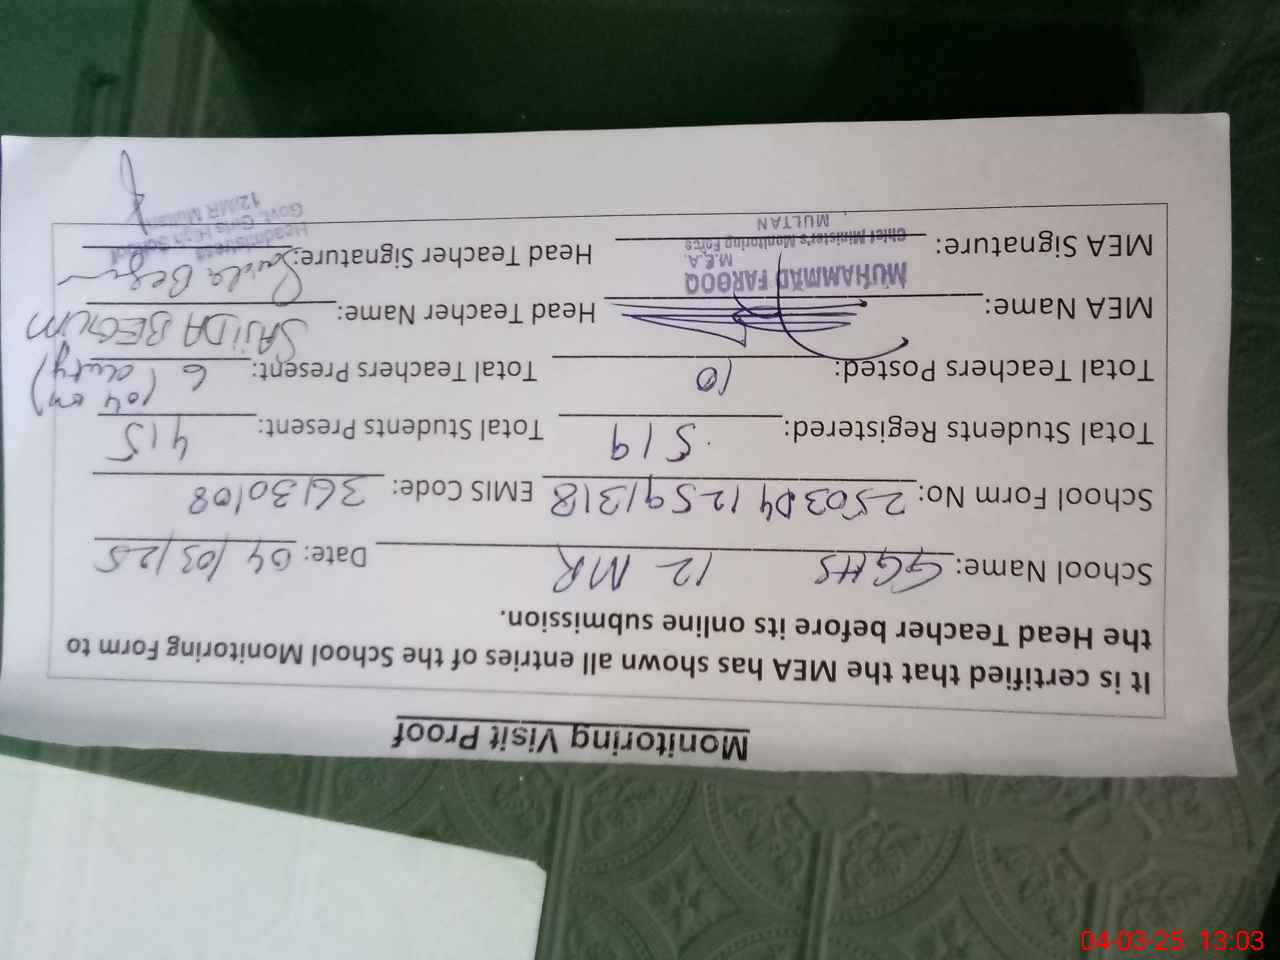 Monitoring Visit Proof
It is certified that the MEA has shown all entries of the School Monitoring Form to
the Head Teacher before its online submission.
School Name: GGHS 12 MR Date: 04/03/25
School Form No: 25030412591318 EMIS Code: 36130108
Total Students Registered: 519 Total Students Present: 415
Total Teachers Posted: 10 Total Teachers Present: 6 (04 on duty)
MEA Name: Head Teacher Name: SAJIDA BEGUM
MUHAMMAD FAROOQ
M.E.A.
MEA Signature: Head Teacher Signature: Sajida Begum
Chief Minister's Monitoring Force
MULTAN
Headmistress
Govt. Girls High School
12/MR Multan
04-03-25 13:03